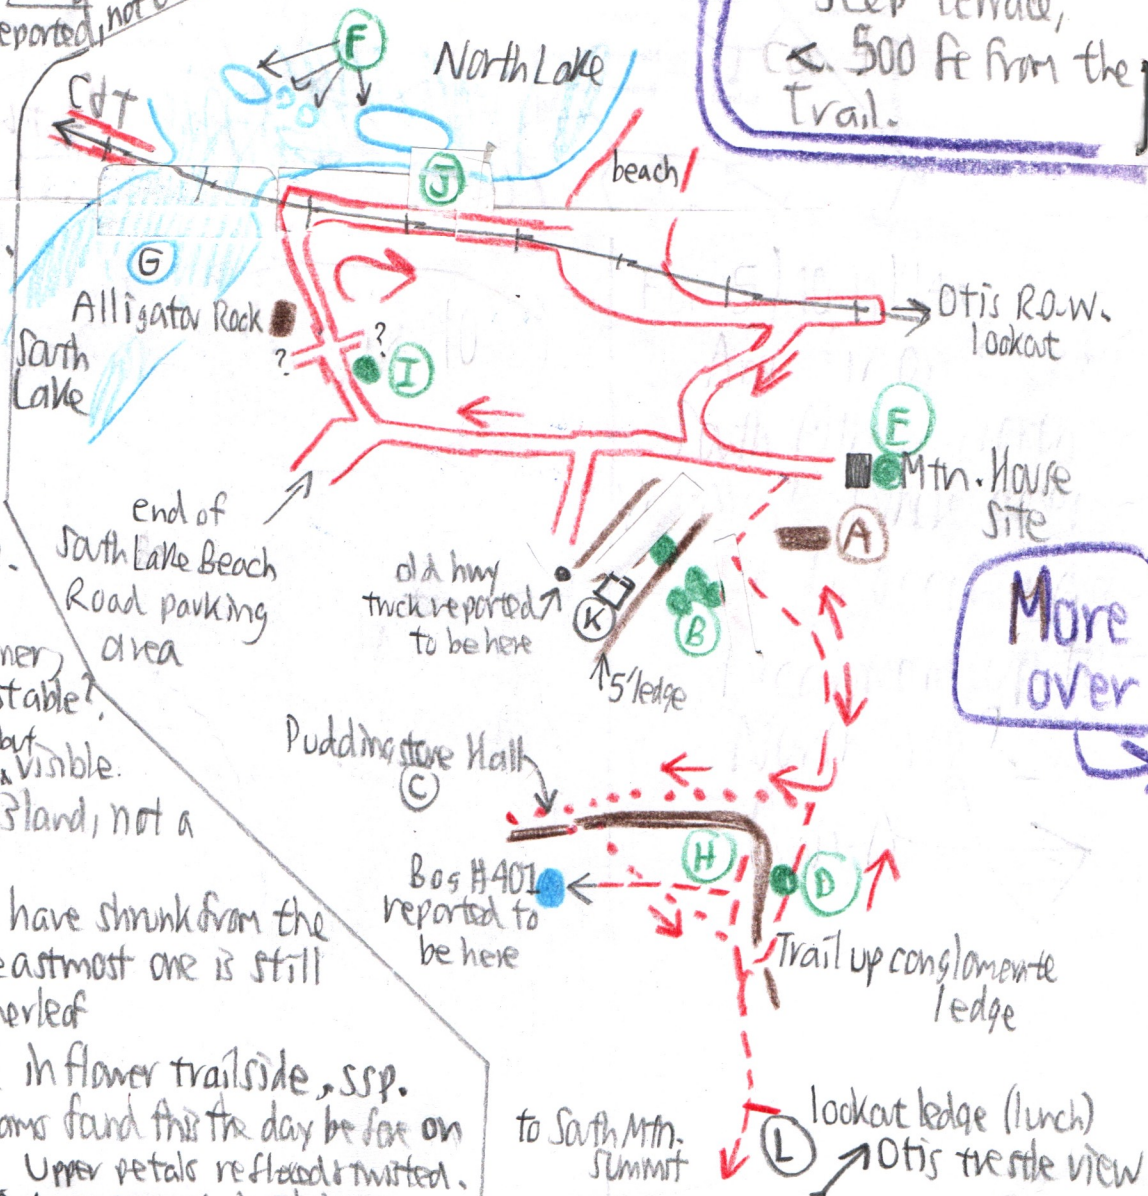 eported, not
F
North Lake
step terrace,
< 500 ft from the
trail.
Cdt
J
beach
G
Alligator Rock
South
Lake
?
?
I
Otis R.O.W.
lookout
E
Mtn. House
Site
A
end of
South Lake Beach
Road parking
area
old hwy
truck reported
to be here
K
B
5' ledge
More
over
ner,
stable?
but
visible.
Island, not a
Puddingstone Hall
C
Bog #401
reported to
be here
H
D
Trail up conglomerate
ledge
have shrunk from the
eastmost one is still
herleaf
in flower trailside, ssp.
ams found this the day before on
Upper petals reflexed & twisted.
to South Mtn.
Summit
L
lookout ledge (lunch)
Otis trestle view